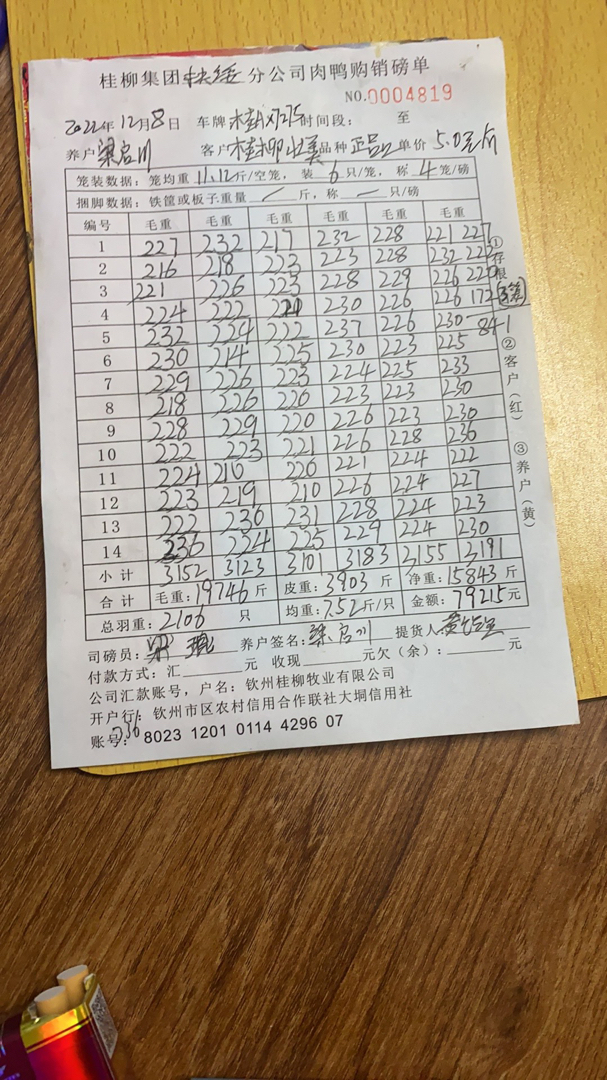 桂柳集团 分公司肉鸭购销磅单
NO.0004819
2022年12月8日 车牌 时间段: 至
养户 梁启川 客户 桂柳 品种 正品 单价 5.0元/斤
笼装数据: 笼均重 11.12斤/空笼, 装 6 只/笼, 称 4 笼/磅
捆脚数据: 铁筐或板子重量 / 斤, 称 / 只/磅
编号 毛重 毛重 毛重 毛重 毛重 毛重
1 227 232 217 232 228 221 227
2 216 218 223 223 228 232
3 221 226 223 228 229 226
4 224 222 230 226 226 172
5 232 224 222 237 226 230 841
6 230 214 225 230 223 225
7 229 226 223 224 225 233
8 218 226 226 223 223 230
9 228 229 220 226 223 230
10 222 223 221 226 228 236
11 224 216 226 221 224 222
12 223 219 210 226 224 227
13 222 236 231 228 224 223
14 236 224 225 229 224 230
小计 3152 3123 3101 3183 3155 3191
合计 毛重: 19746 斤 皮重: 3903 斤 净重: 15843 斤
总羽重: 2106 只 均重: 7.52 斤/只 金额: 79215元
司磅员: 养户签名: 梁启川 提货人
付款方式: 汇 元 收现 元欠(余): 元
公司汇款账号, 户名: 钦州桂柳牧业有限公司
开户行: 钦州市区农村信用合作联社大垌信用社
账号: 8023 1201 0114 4296 07
736
①存根
②客户(红)
③养户(黄)